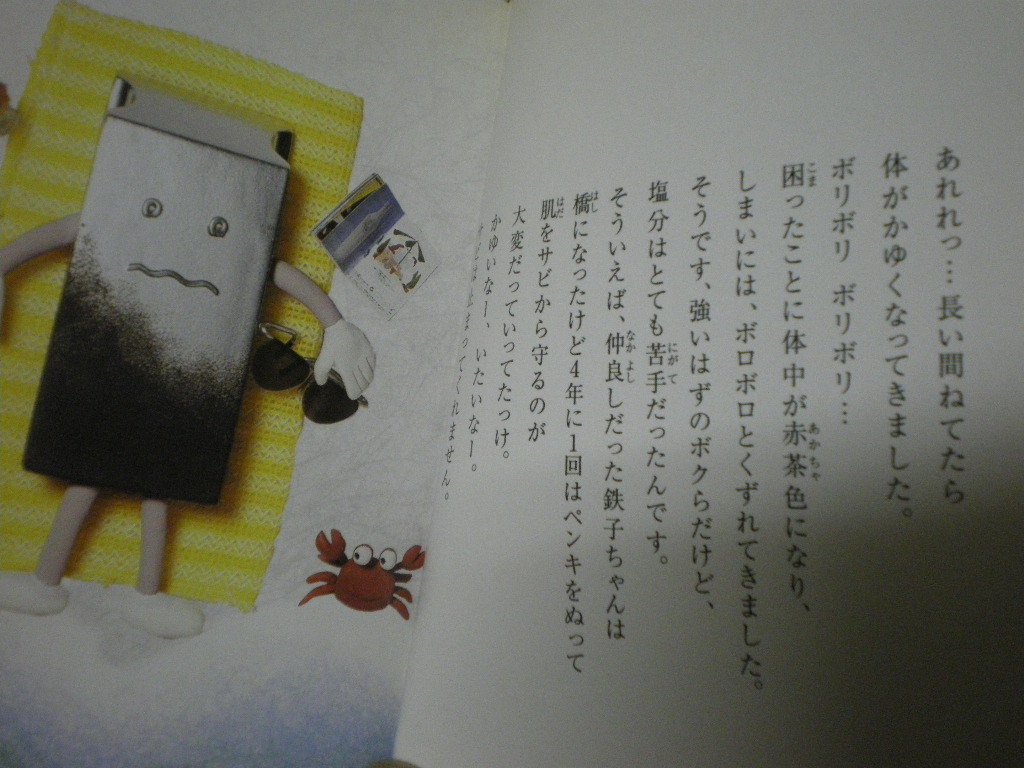 あれれっ…長い間ねてたら
体がかゆくなってきました。
ボリボリ ボリボリ…
困ったことに体中が赤茶色になり、
しまいには、ボロボロとくずれてきました。
そうです、強いはずのボクらだけど、
塩分はとても苦手だったんです。
そういえば、仲良しだった鉄子ちゃんは
橋になったけど4年に1回はペンキをぬって
肌をサビから守るのが
大変だっていってたっけ。
かゆいなー、いたいなー。
まってくれません。